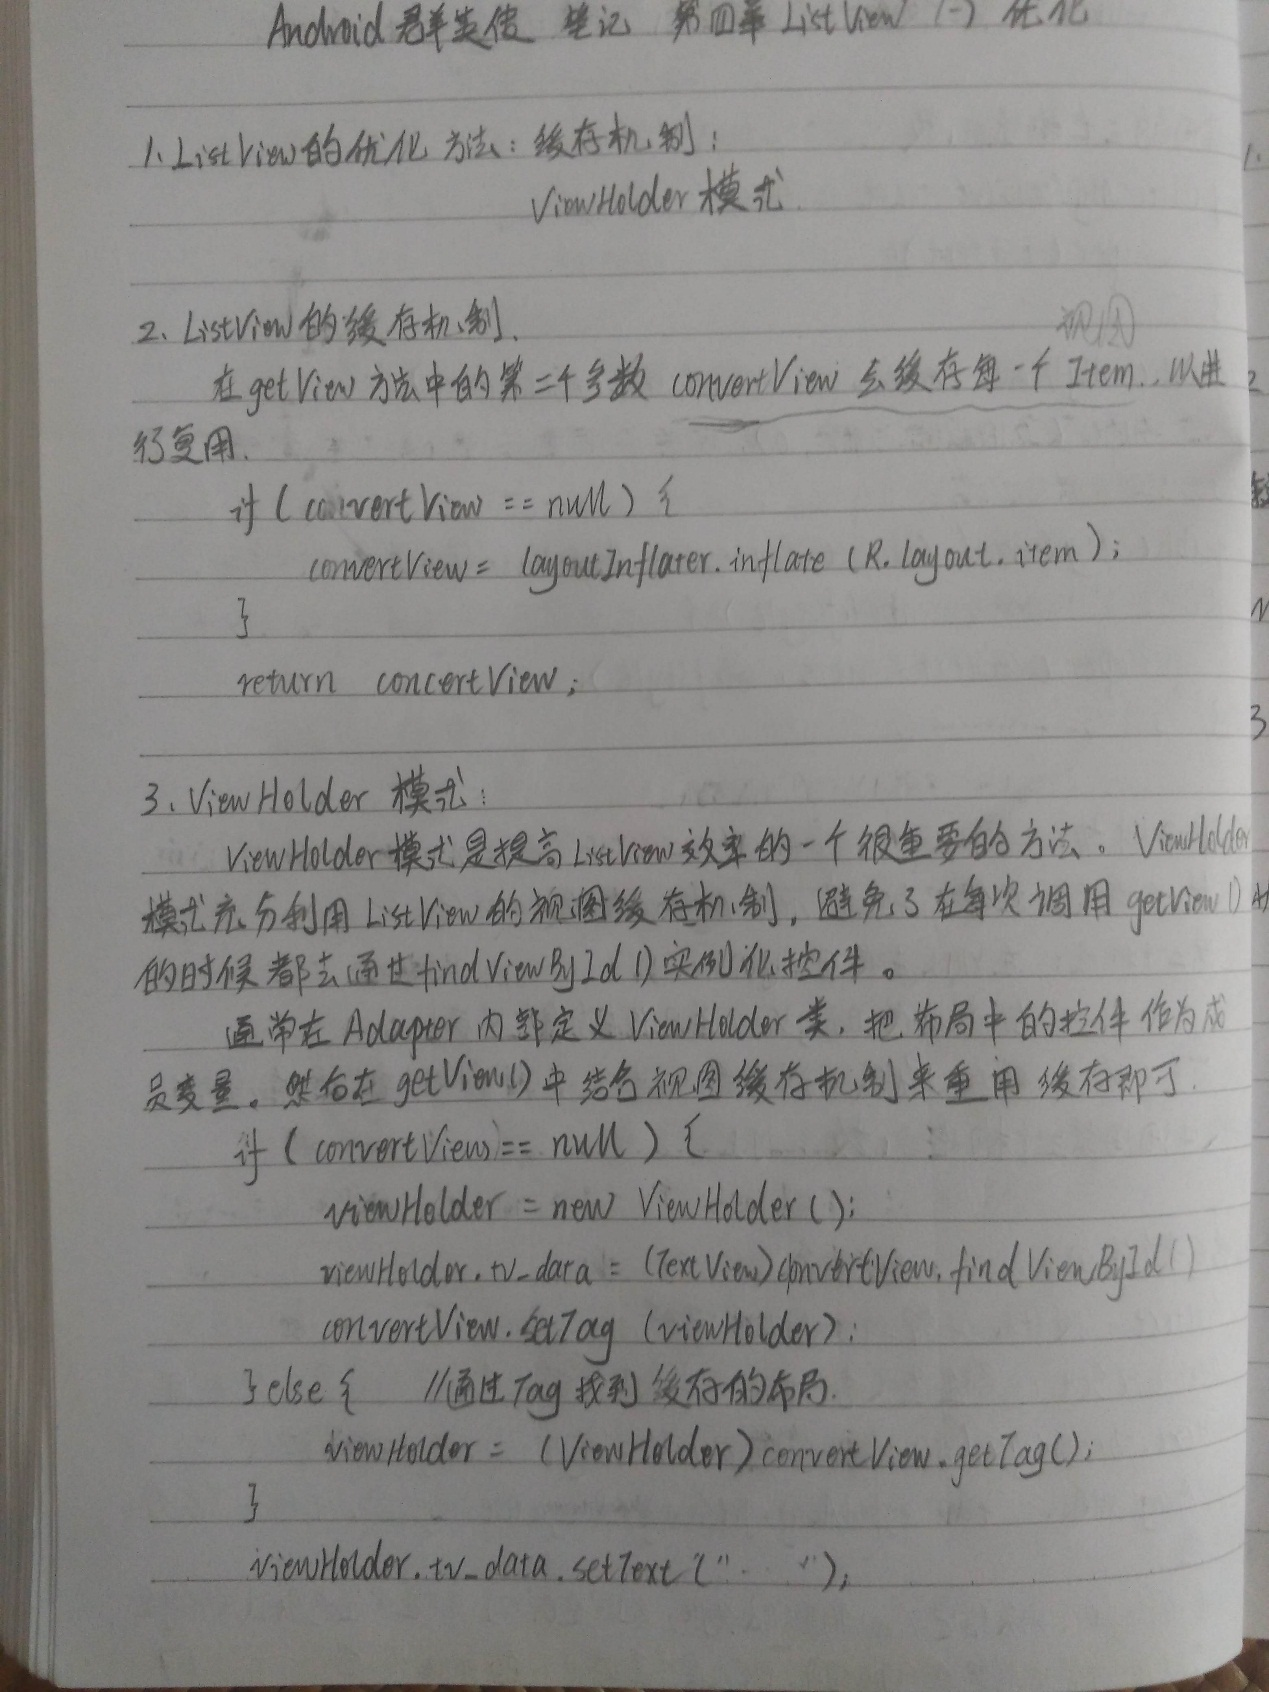 Android 群英传 笔记 第四章 ListView (一) 优化
1、ListView的优化方法：缓存机制：
ViewHolder 模式.
2、ListView的缓存机制.
视图
在getView方法中的第二个参数 convertView 去缓存每一个Item.. 以进
行复用.
if ( convertView == null ) {
convertView = layoutInflater.inflate (R.layout.item);
}
return concertView;
3、ViewHolder 模式：
ViewHolder模式是提高ListView效率的一个很重要的方法。ViewHolder
模式充分利用ListView的视图缓存机制，避免了在每次调用getView()
的时候都去通过findViewById()实例化控件。
通常在Adapter内部定义ViewHolder类，把布局中的控件作为成
员变量。然后在getView()中结合视图缓存机制来重用缓存即可.
if ( convertView == null ) {
viewHolder = new ViewHolder();
viewHolder.tv_data = (TextView)convertView.findViewById()
convertView.setTag (viewHolder);
} else { //通过Tag找到缓存的布局.
viewHolder = (ViewHolder)convertView.getTag();
}
viewHolder.tv_data.setText (" ");